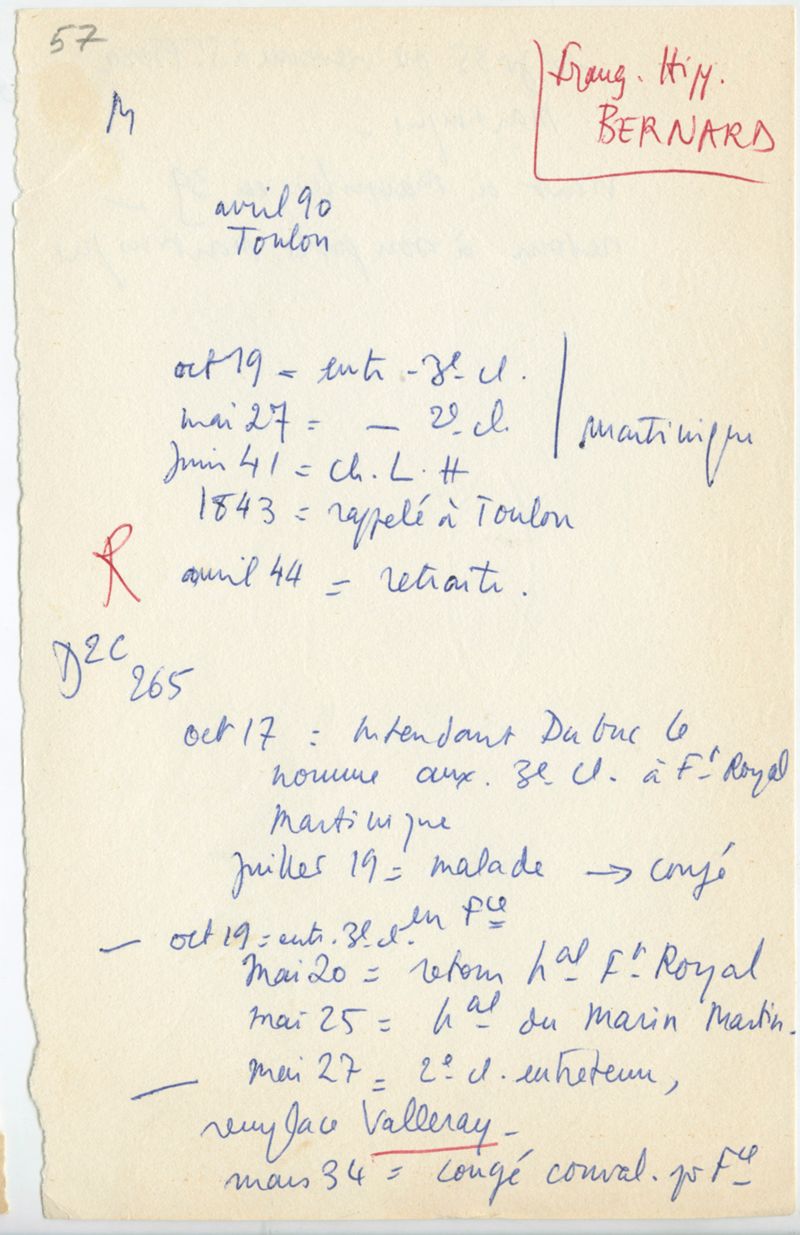 57
M
Franç. Hipp.
BERNARD
avril 90
Toulon
oct 19 = entr - 3e cl.
mai 27 = — 2e cl.
Martinique
Juin 41 = ch. L. H
1843 = rappelé à Toulon
R
avril 44 = retraite.
D2C
265
oct 17 : Intendant Dubuc le
nomme aux. 3e cl. à Ft Royal
Martinique
Juillet 19 = malade → congé
en Fce
— oct 19 = entr. 3e cl.
Mai 20 = retour hal Ft Royal
mai 25 = hal du Marin Martin.
— Mai 27 = 2e cl. entretenu,
remplace Valleray -
mars 34 = congé conval. pr Fce